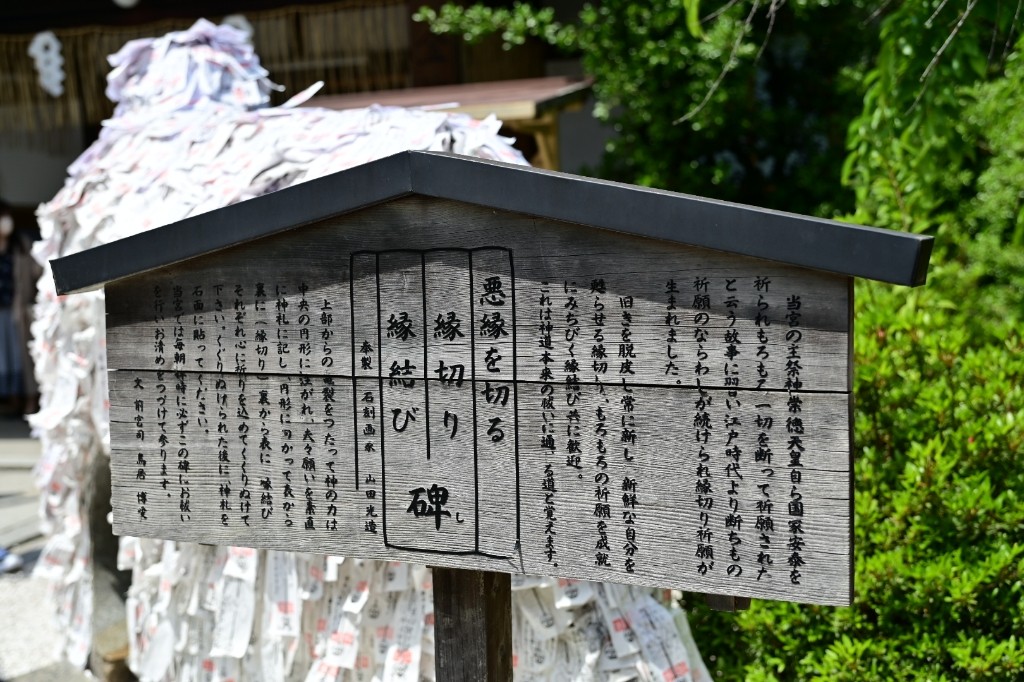 当宮の主祭神崇徳天皇自ら国家安泰を
祈られもろもろ一切を断って祈願された
と云う故事に習い江戸時代より断ちもの
祈願のならわしが続けられ縁切り祈願が
生まれました。
旧きを脱皮し常に新し、新鮮な自分を
甦らせる縁切り、もろもろの祈願を成就
にみちびく縁結び共に歓迎。
これは神道本来の祓いに通ずる道と覚えます。
悪縁を切る
縁切り
縁結び
碑
し
奉製 石刻画家 山田光造
上部からの亀裂をつたって神の力は
中央の円形に注がれ、夫々願いを素直
に神札に記し、円形に向かって表から
裏に（縁切り）裏から表に（縁結び
それぞれ心に祈りを込めてくぐりぬけて
下さい。くぐりぬけられた後に、神札を
石面に貼ってください。
当宮では毎朝 時に必ずこの碑にお祓い
を行いお清めをつづけて参ります。
文 前宮司 鳥居 博